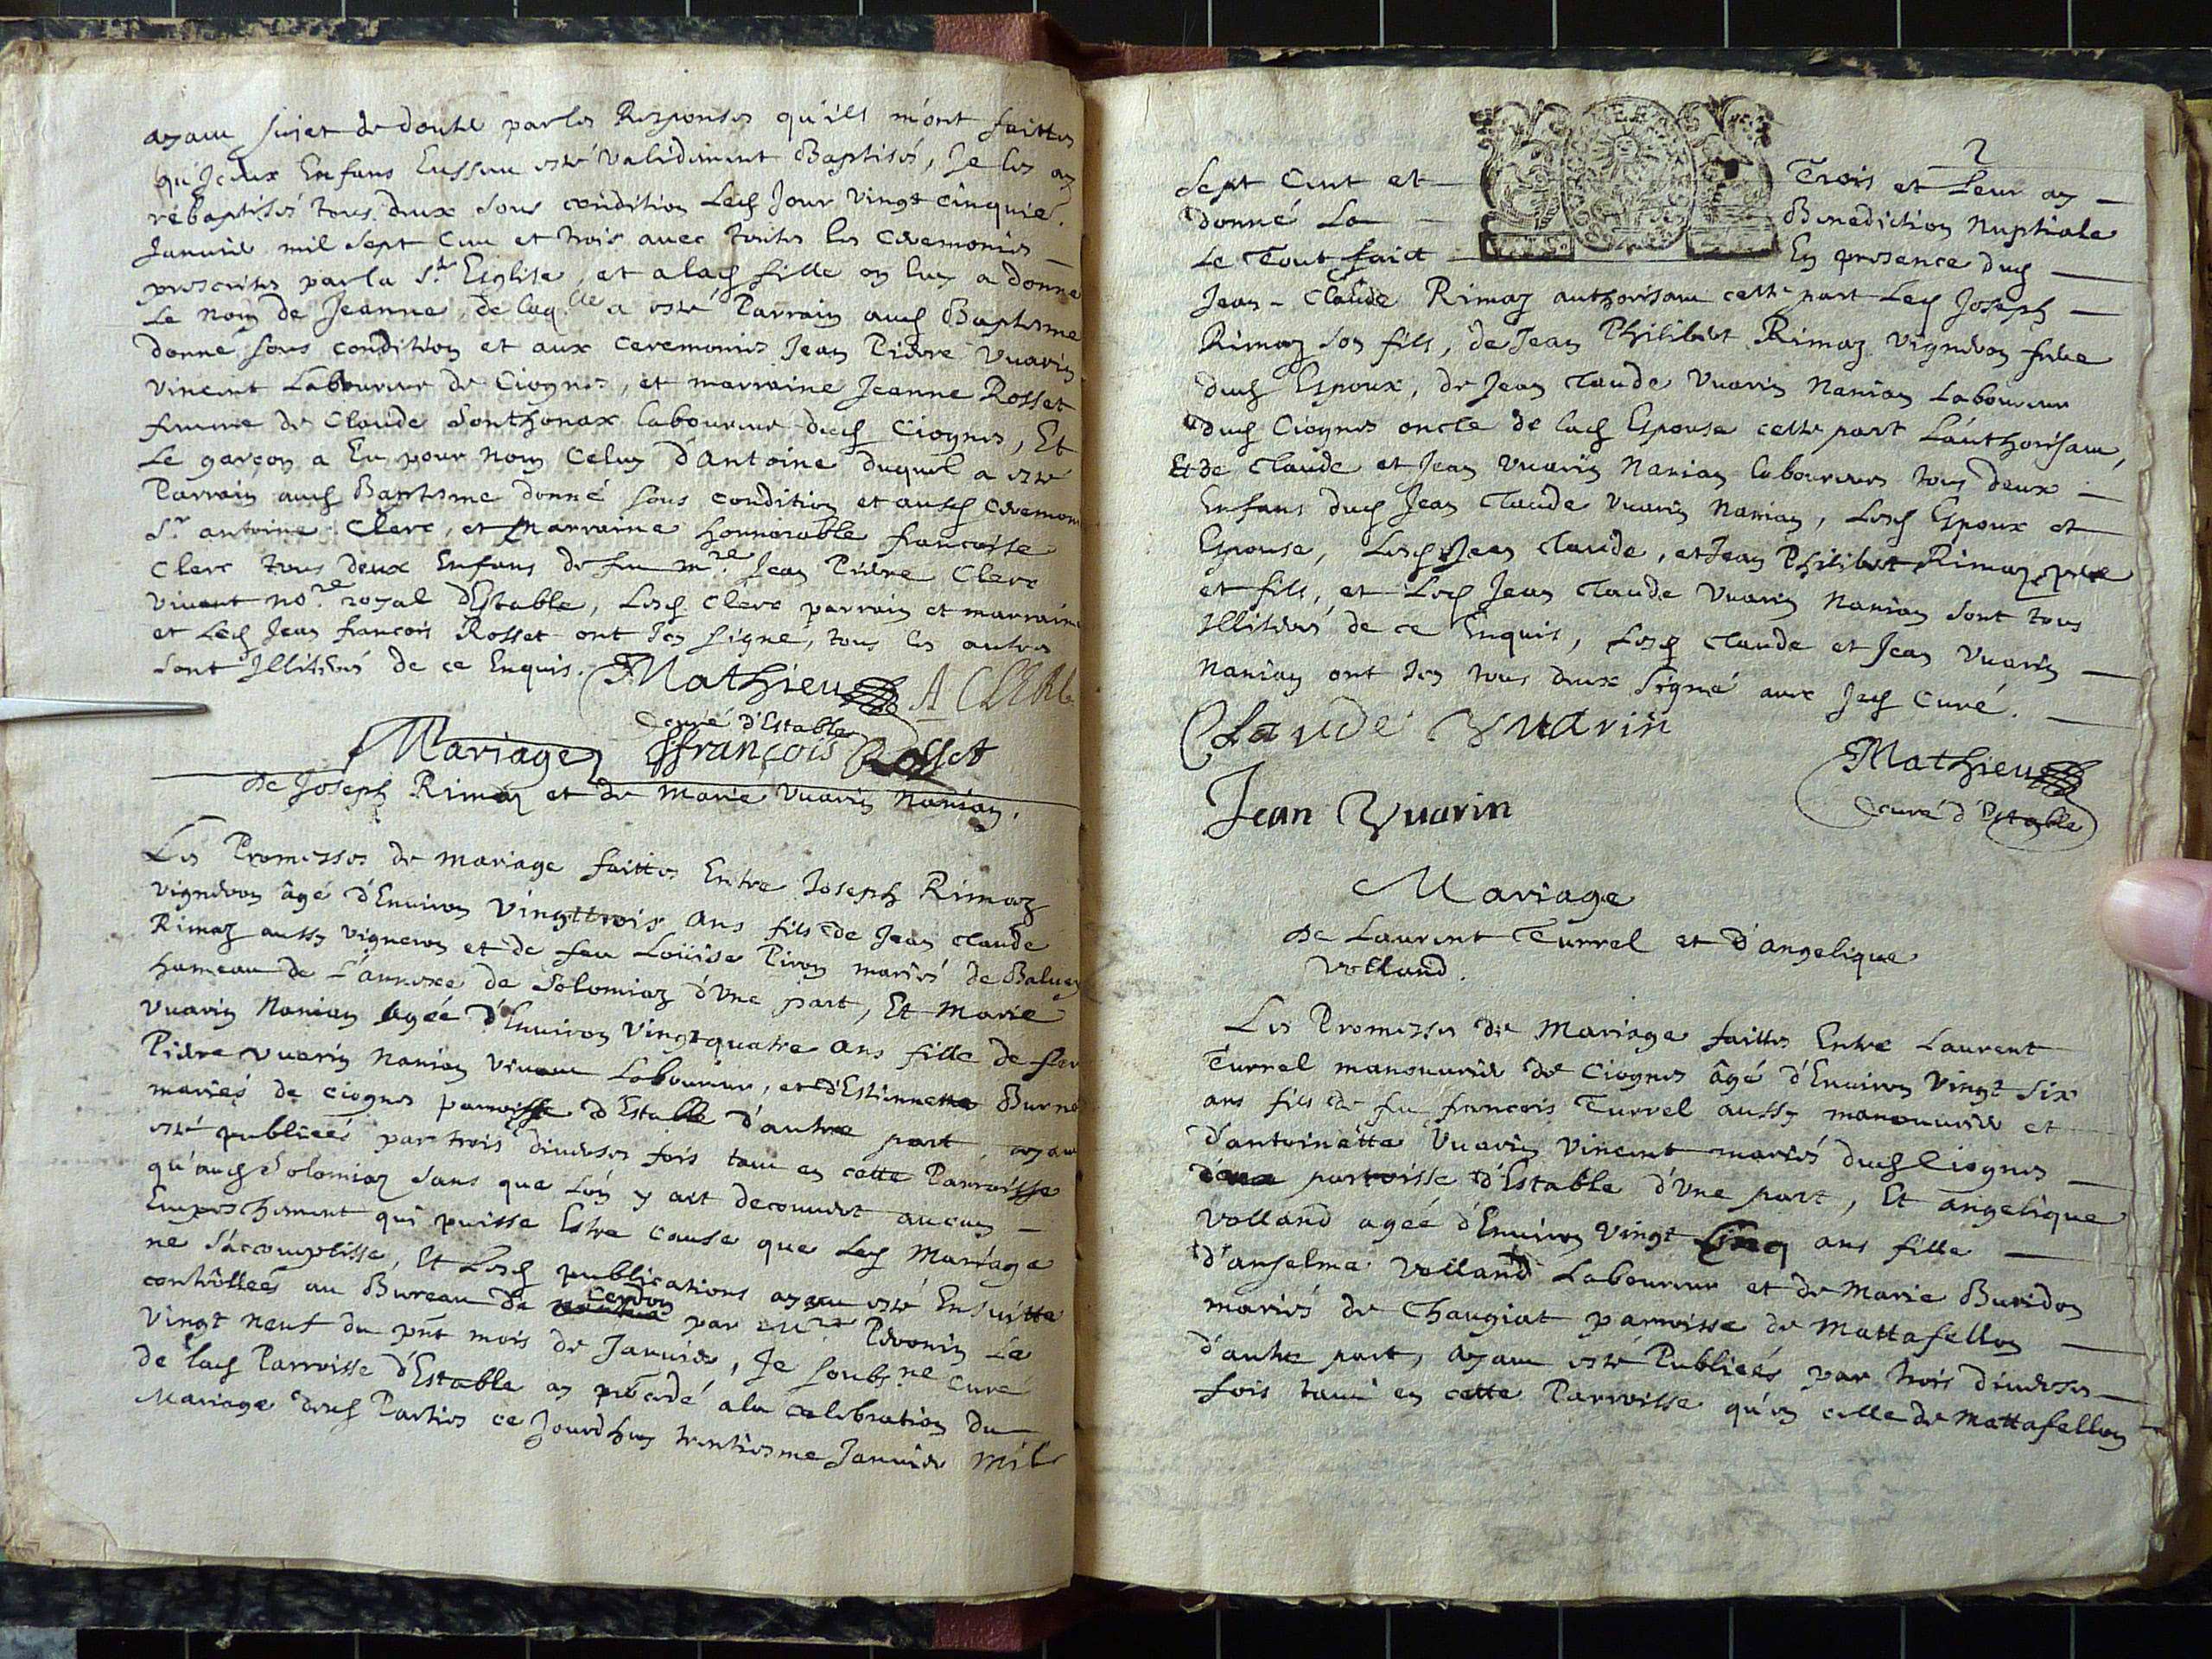 ayant sujet de doute par les Responses qu'ils m'ont faittes
qu'Jceux Enfans Eussent esté validement Baptisés, Je les ay
rébaptisés tous deux sous condition Led Jour vingt cinquie.
Januier mil sept Cent et trois auec toutes les Ceremonies
prescrites par la Ste Esglise, et a lad fille on luy a donné
Le nom de Jeanne, de laqlle a esté Parrain aud Baptesme
donné sous condition et aux ceremonies Jean Pierre Vuarin
vincent Laboureur de Ciognes, et marraine Jeanne Rosset
femme de Claude Sonthonax laboureur dud Ciognes, Et
Le garçon a Eu pour nom Celuy d'antoine duquel a esté
Parrain aud Baptesme donné sous condition et ausd Ceremon
Sr antoine Clerc, et Marraine honnorable francoise
Clerc tous deux Enfans de feu mre Jean Pierre Clerc
viuant nore royal d'Estable, Lesd Clerc parrain et marraine
et Led Jean francois Rosset ont Icy signé, tous les autres
sont Jllitérés de ce Enquis. Mathieu A CLERC
curé d'Estable
ffrançois Rosset
Mariage
de Joseph Rimaz et de Marie Vuarin Nanian.
Les Promesses de mariage faittes Entre Joseph Rimaz
vigneron âgé d'Enuiron vingttrois ans fils de Jean claude
Rimaz aussy vigneron et de feu Loüise Piron mariés de Baluay
hameau de L'annexe de Solomiaz d'Vne part, Et Marie
Vuarin Nanian agée d'Enuiron vingtquatre ans fille de feu
Pierre Vuarin Nanian viuant Laboureur, et d'Estiennette Burne
mariés de ciognes parroisse d'Estable d'autre part ayant
esté publieés par trois diuerses fois tant en cette Parroisse
qu'aud Solomiaz sans que L'on y ait decouuert aucun
Empeschement qui puisse Estre cause que Led Mariage
ne s'accomplisse, Et Lesd publications ayant esté Ensuitte
contrôlleés au Bureau de Cerdon par Mre Peronin Le
vingt neuf du pnt mois de Januier, Je soubsne Curé
de lad Parroisse d'Estable ay procedé a la celebration du
Mariage desd Parties ce Jourdhuy trentiesme Januier mil
2
Sept Cent et Trois et Leur ay
donné La Benediction Nuptiale
Le Tout faict En presence dud
Jean-Claude Rimaz authorisant cette part Led Joseph
Rimaz son fils, de Jean Philibert Rimaz vigneron frere
dud Espoux, de Jean Claude Vuarin Nanian Laboureur
dud Ciognes oncle de lad Espouse cette part L'authorisant,
Et de Claude et Jean Vuarin Nanian laboureurs tous deux
Enfans dud Jean Claude Vuarin Nanian, Lesd Espoux et
Espouse, Lesd Jean Claude, et Jean Philibert Rimaz pere
et fils, et Led Jean Claude Vuarin Nanian sont tous
Jllitérés de ce Enquis, Lesd Claude et Jean Vuarin
Nanian ont Icy tous deux signé auec Jed Curé.
Claude Vuarin
Mathieu
curé d'Estable
Jean Vuarin
Mariage
de Laurent Turrel et d'angelique
Volland.
Les Promesses de Mariage faittes Entre Laurent
Turrel manouurier de Ciognes âgé d'Enuiron vingt six
ans fils de feu francois Turrel aussy manouurier et
d'antoinette Vuarin Vincent mariés dud Ciognes
parroisse d'Estable d'Vne part, Et angelique
Volland agée d'Enuiron vingt Cinq ans fille
d'anselme Volland Laboureur et de Marie Buridon
mariés de Chaugiat parroisse de Mattafellon
d'autre part, ayant esté Publieés par trois diuerses
fois tant en cette Parroisse qu'en celle de Mattafellon